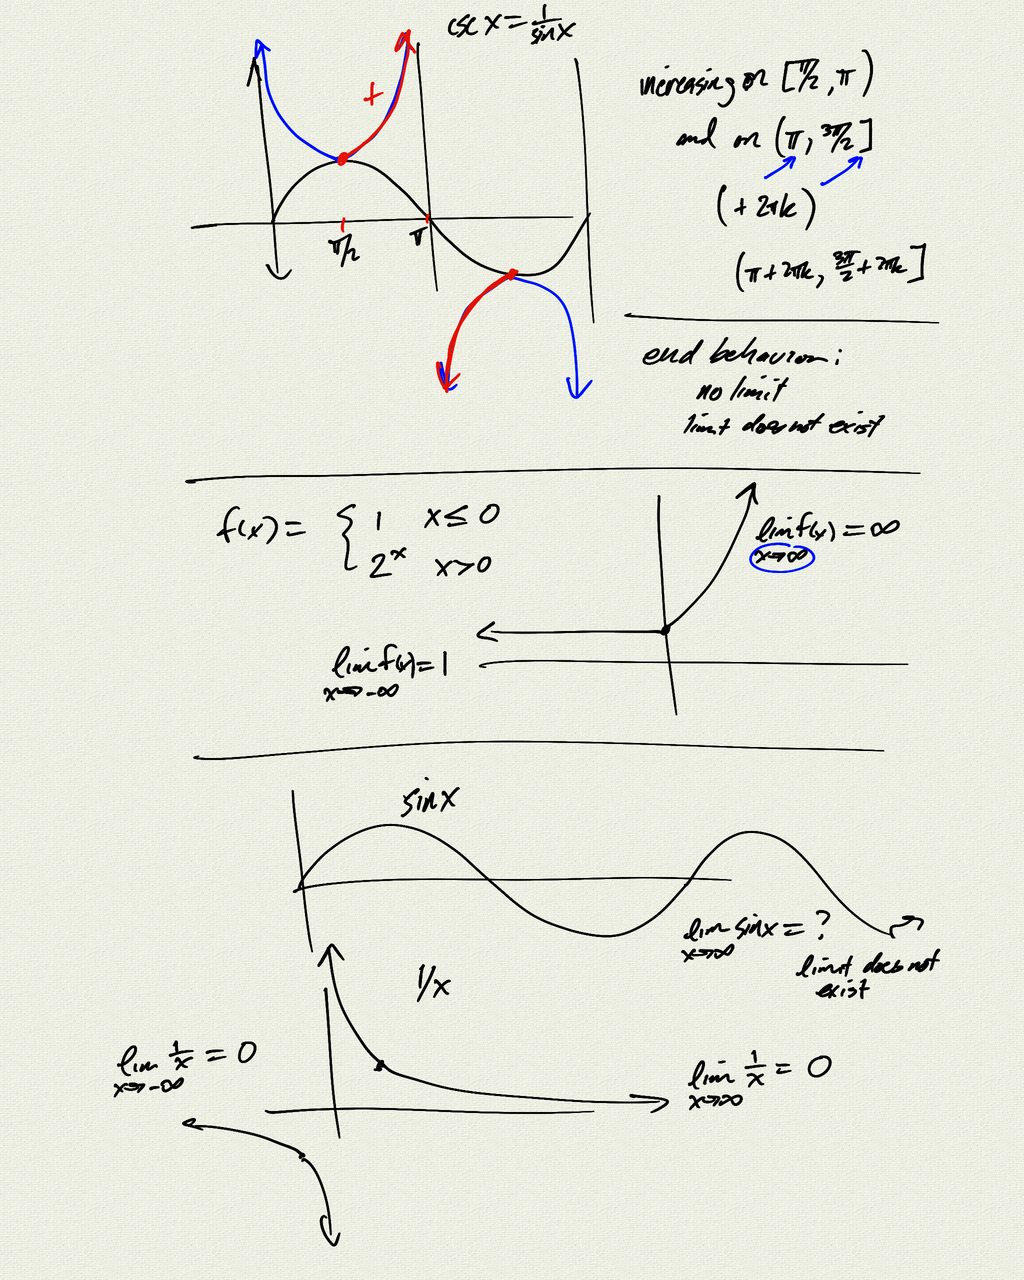 csc x = 1/sin x
+
π/2
π
increasing on [π/2, π)
and on (π, 3π/2]
(+ 2πk)
(π + 2πk, 3π/2 + 2πk]
end behavior:
no limit
limit does not exist
f(x) = { 1 x ≤ 0
2^x x > 0
lim f(x) = ∞
x→∞
lim f(x) = 1
x→-∞
sin x
lim sin x = ?
x→∞
limit does not
exist
1/x
lim 1/x = 0
x→-∞
lim 1/x = 0
x→∞